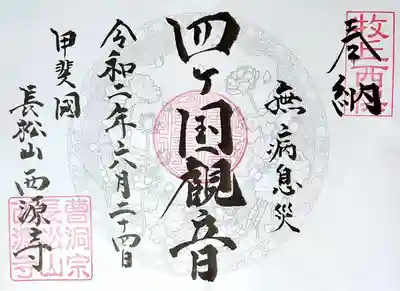 奉納
無病息災
四ヶ国観音
令和二年六月二十四日
甲斐国
長松山西源寺
曹洞宗
長松山
西源寺